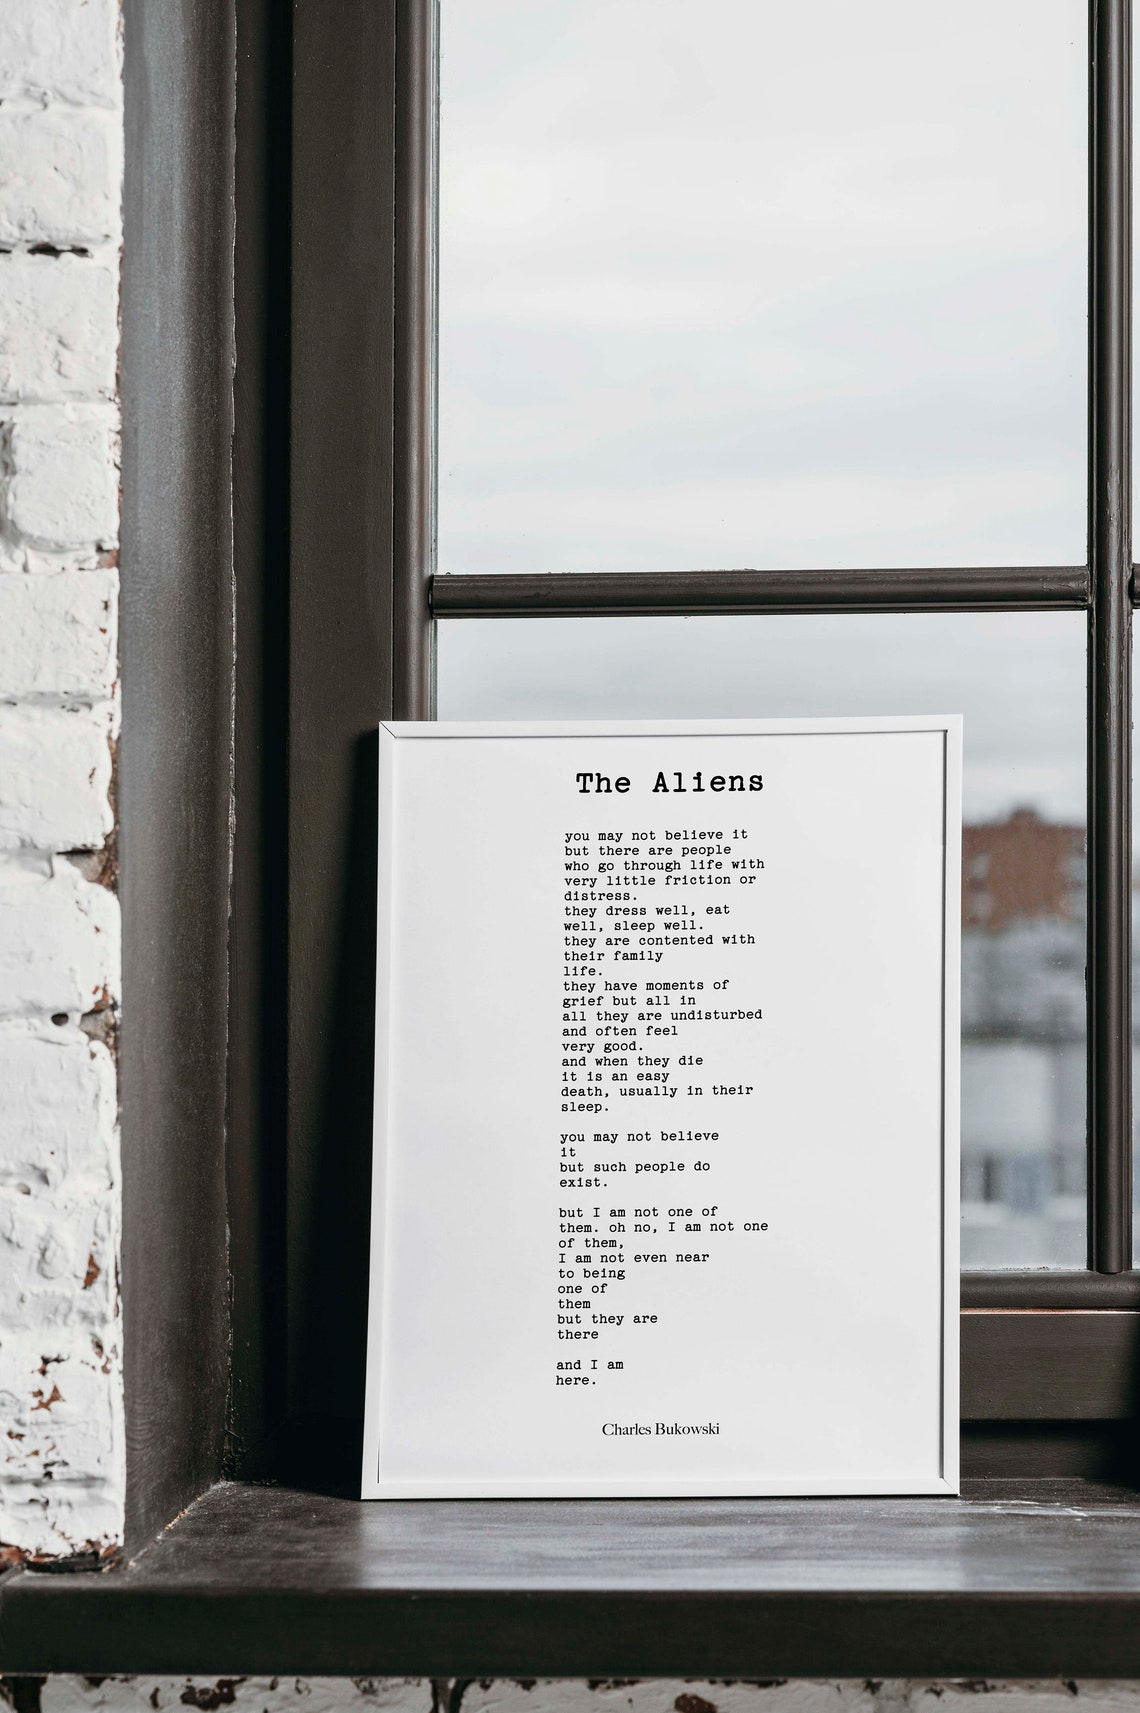 The Aliens
you may not believe it
but there are people
who go through life with
very little friction or
distress.
they dress well, eat
well, sleep well.
they are contented with
their family
life.
they have moments of
grief but all in
all they are undisturbed
and often feel
very good.
and when they die
it is an easy
death, usually in their
sleep.
you may not believe
it
but such people do
exist.
but I am not one of
them. oh no, I am not one
of them,
I am not even near
to being
one of
them
but they are
there
and I am
here.
Charles Bukowski